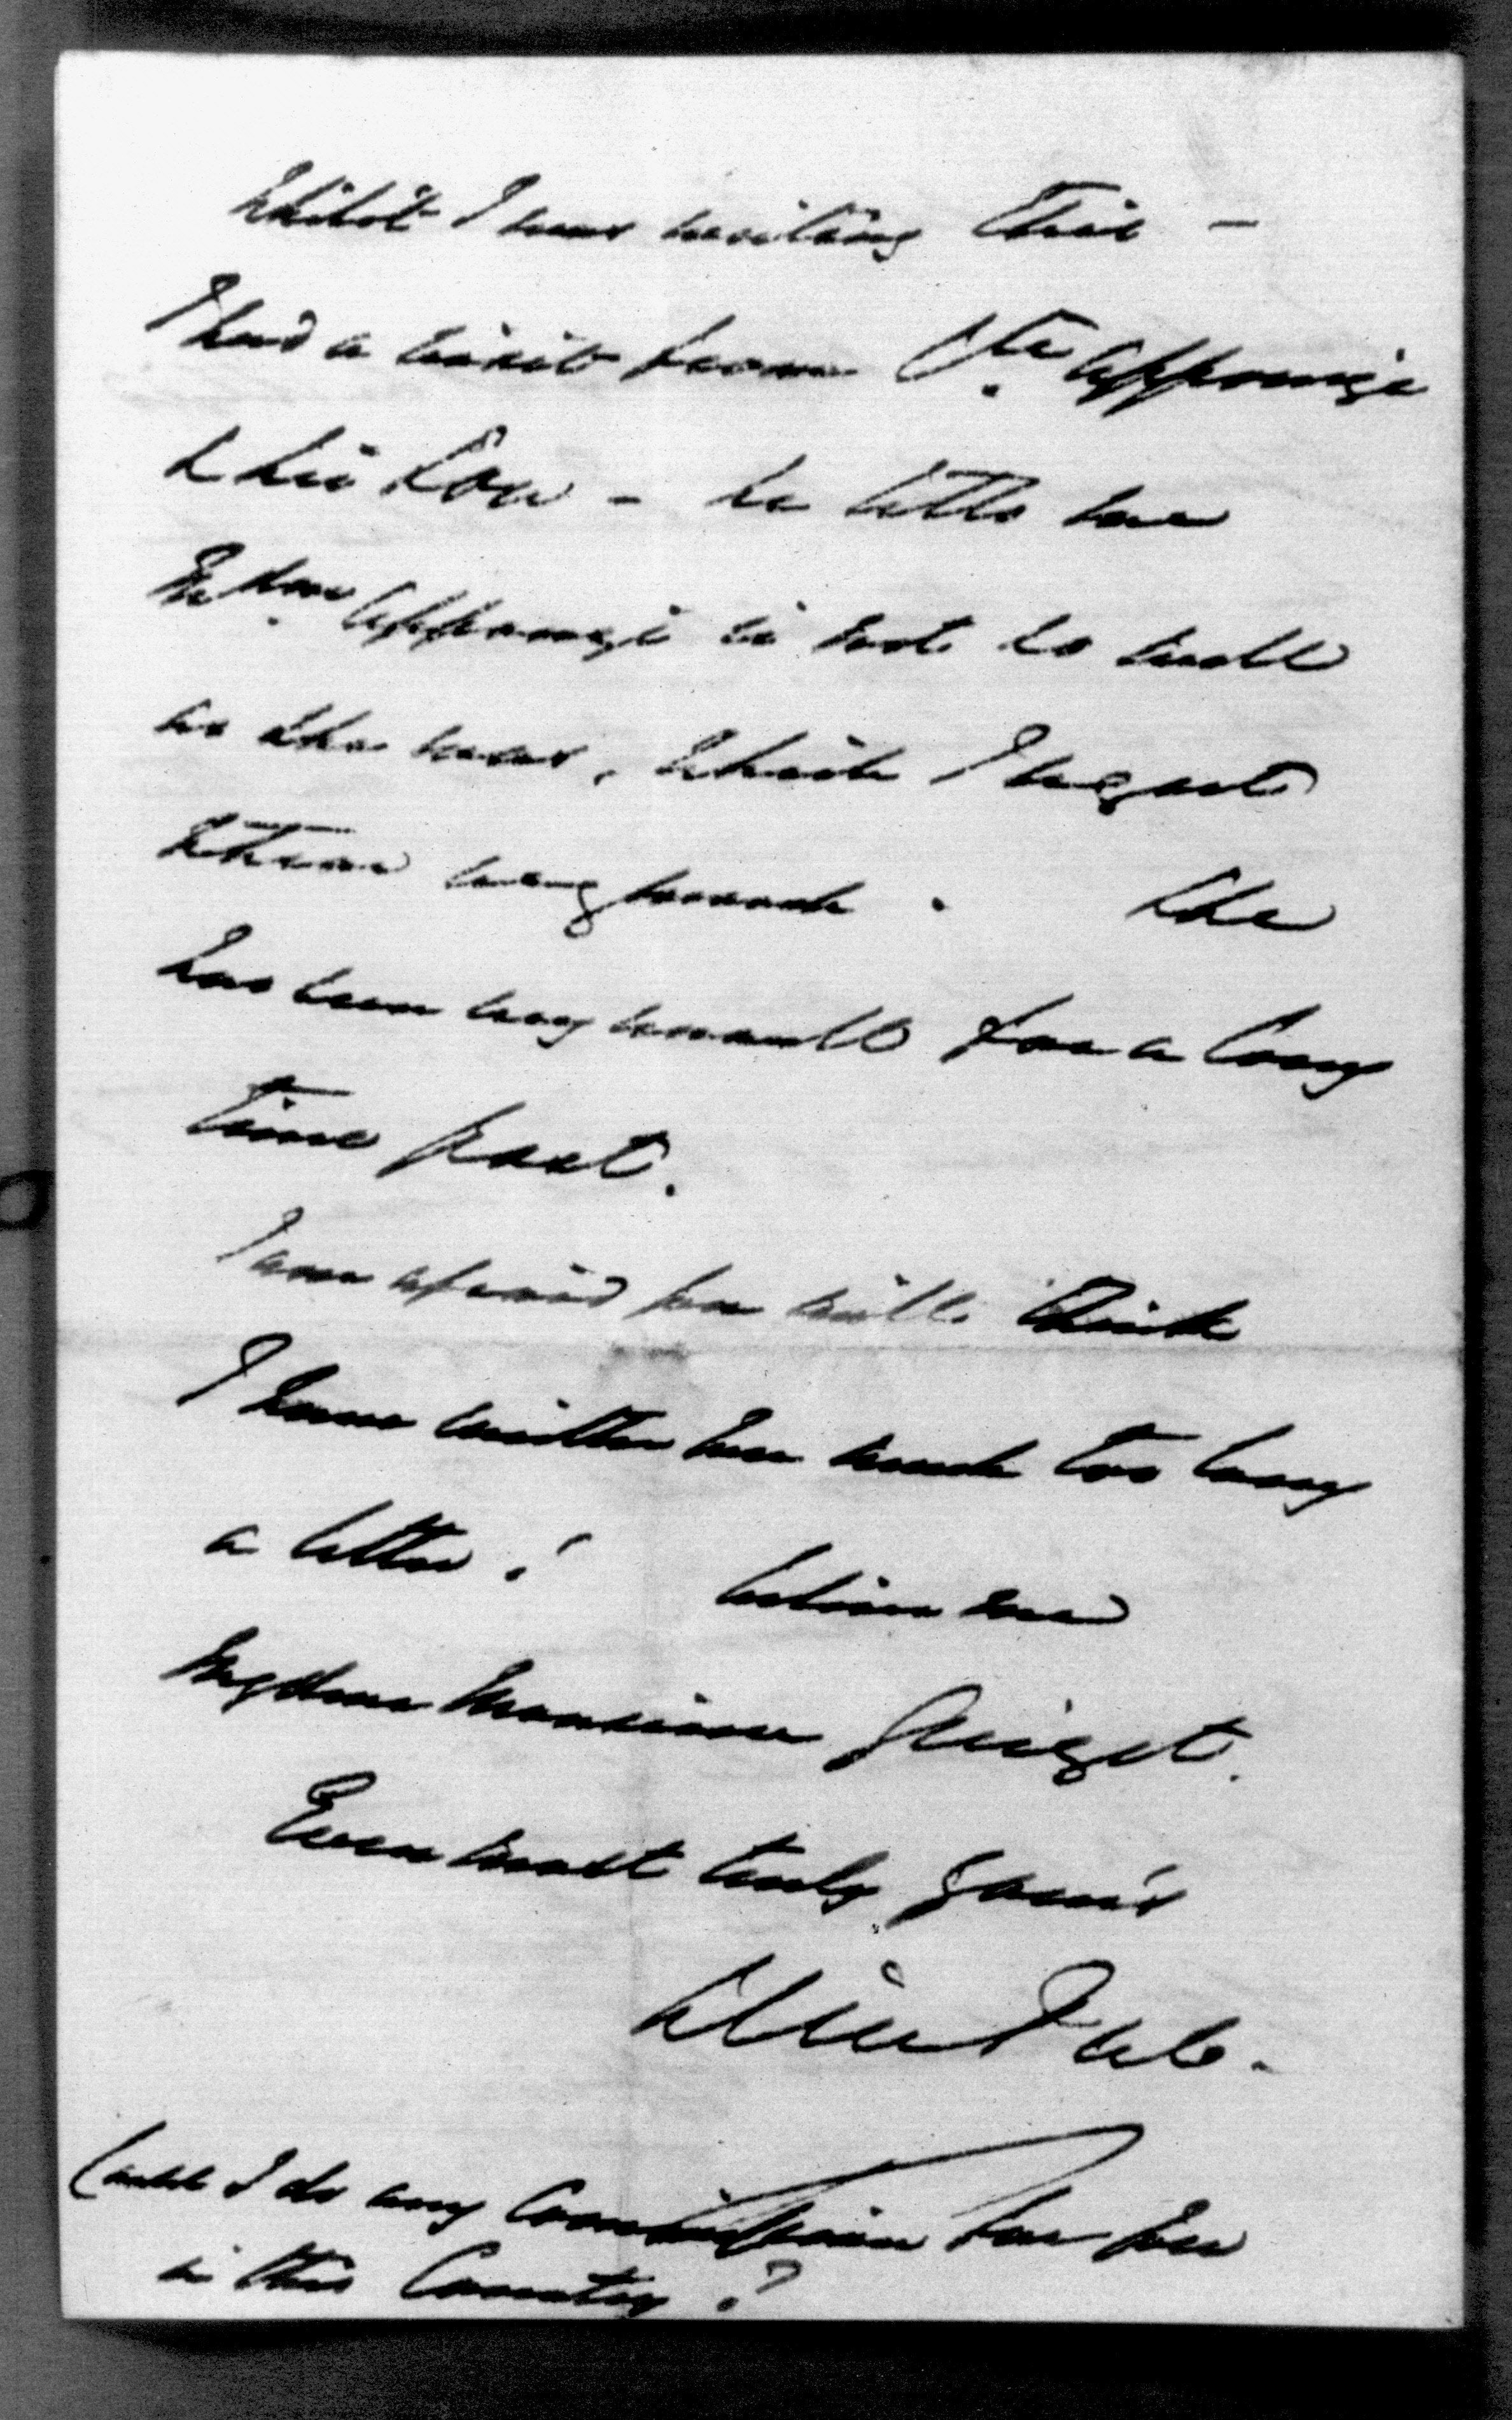 Whilst I was writing this –
I had a visit from Cte. Apponyi
& his Son – he tells me
Me. Apponyi is not so well
as she was, which I regret
very much. She
has been very unwell for a long
time past.
I am afraid you will think
I have written you much too long
a letter! believe me
My dear Monsieur Guizot.
Ever most truly your's
Could I do any Commission for you
in this Country?